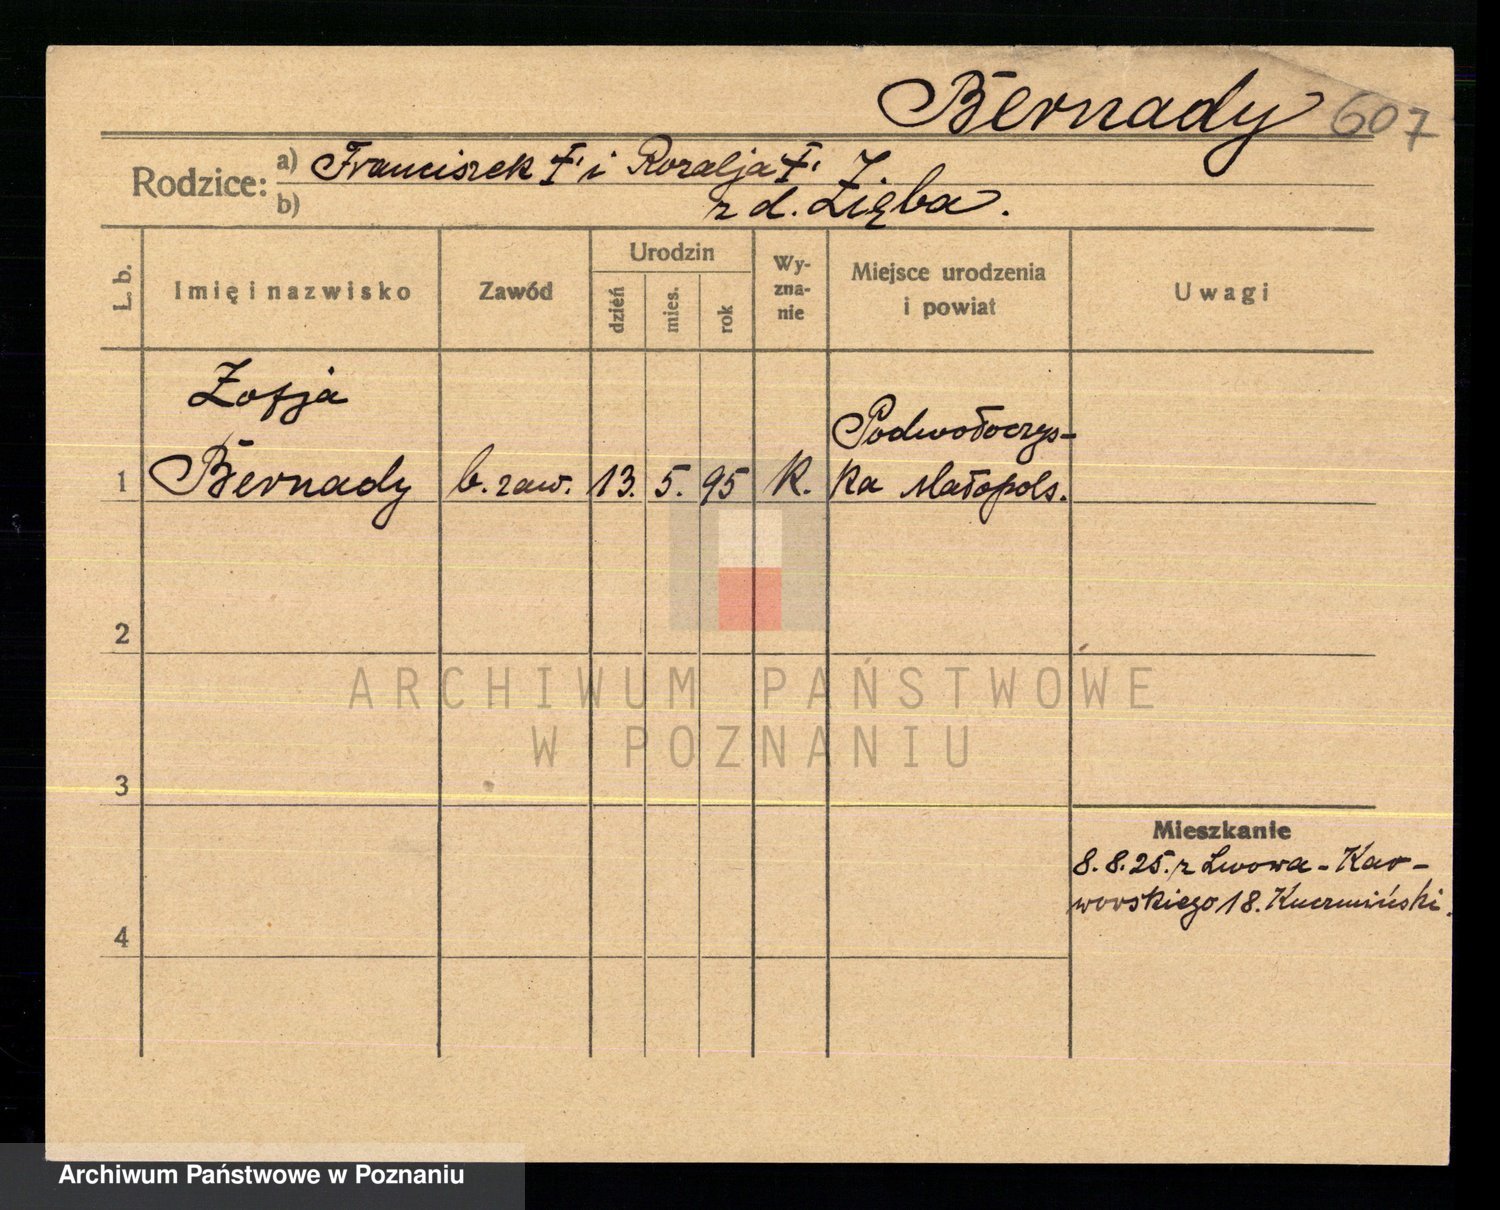 Bernady 607
Rodzice: a) Franciszek † i Rozalja †.
b) z d. Zięba.
L. b. Imię i nazwisko Zawód Urodzin dzień mies. rok Wy-zna-nie Miejsce urodzenia i powiat Uwagi
Zofja
Podwołoczys-
1 Bernady b. zaw. 13. 5. 95 k. ka Małopols.
2
ARCHIWUM PAŃSTWOWE
W POZNANIU
3
Mieszkanie
8.8.25. z Lwowa - Kar-
worskiego 18. Kuczmiński.
4
Archiwum Państwowe w Poznaniu